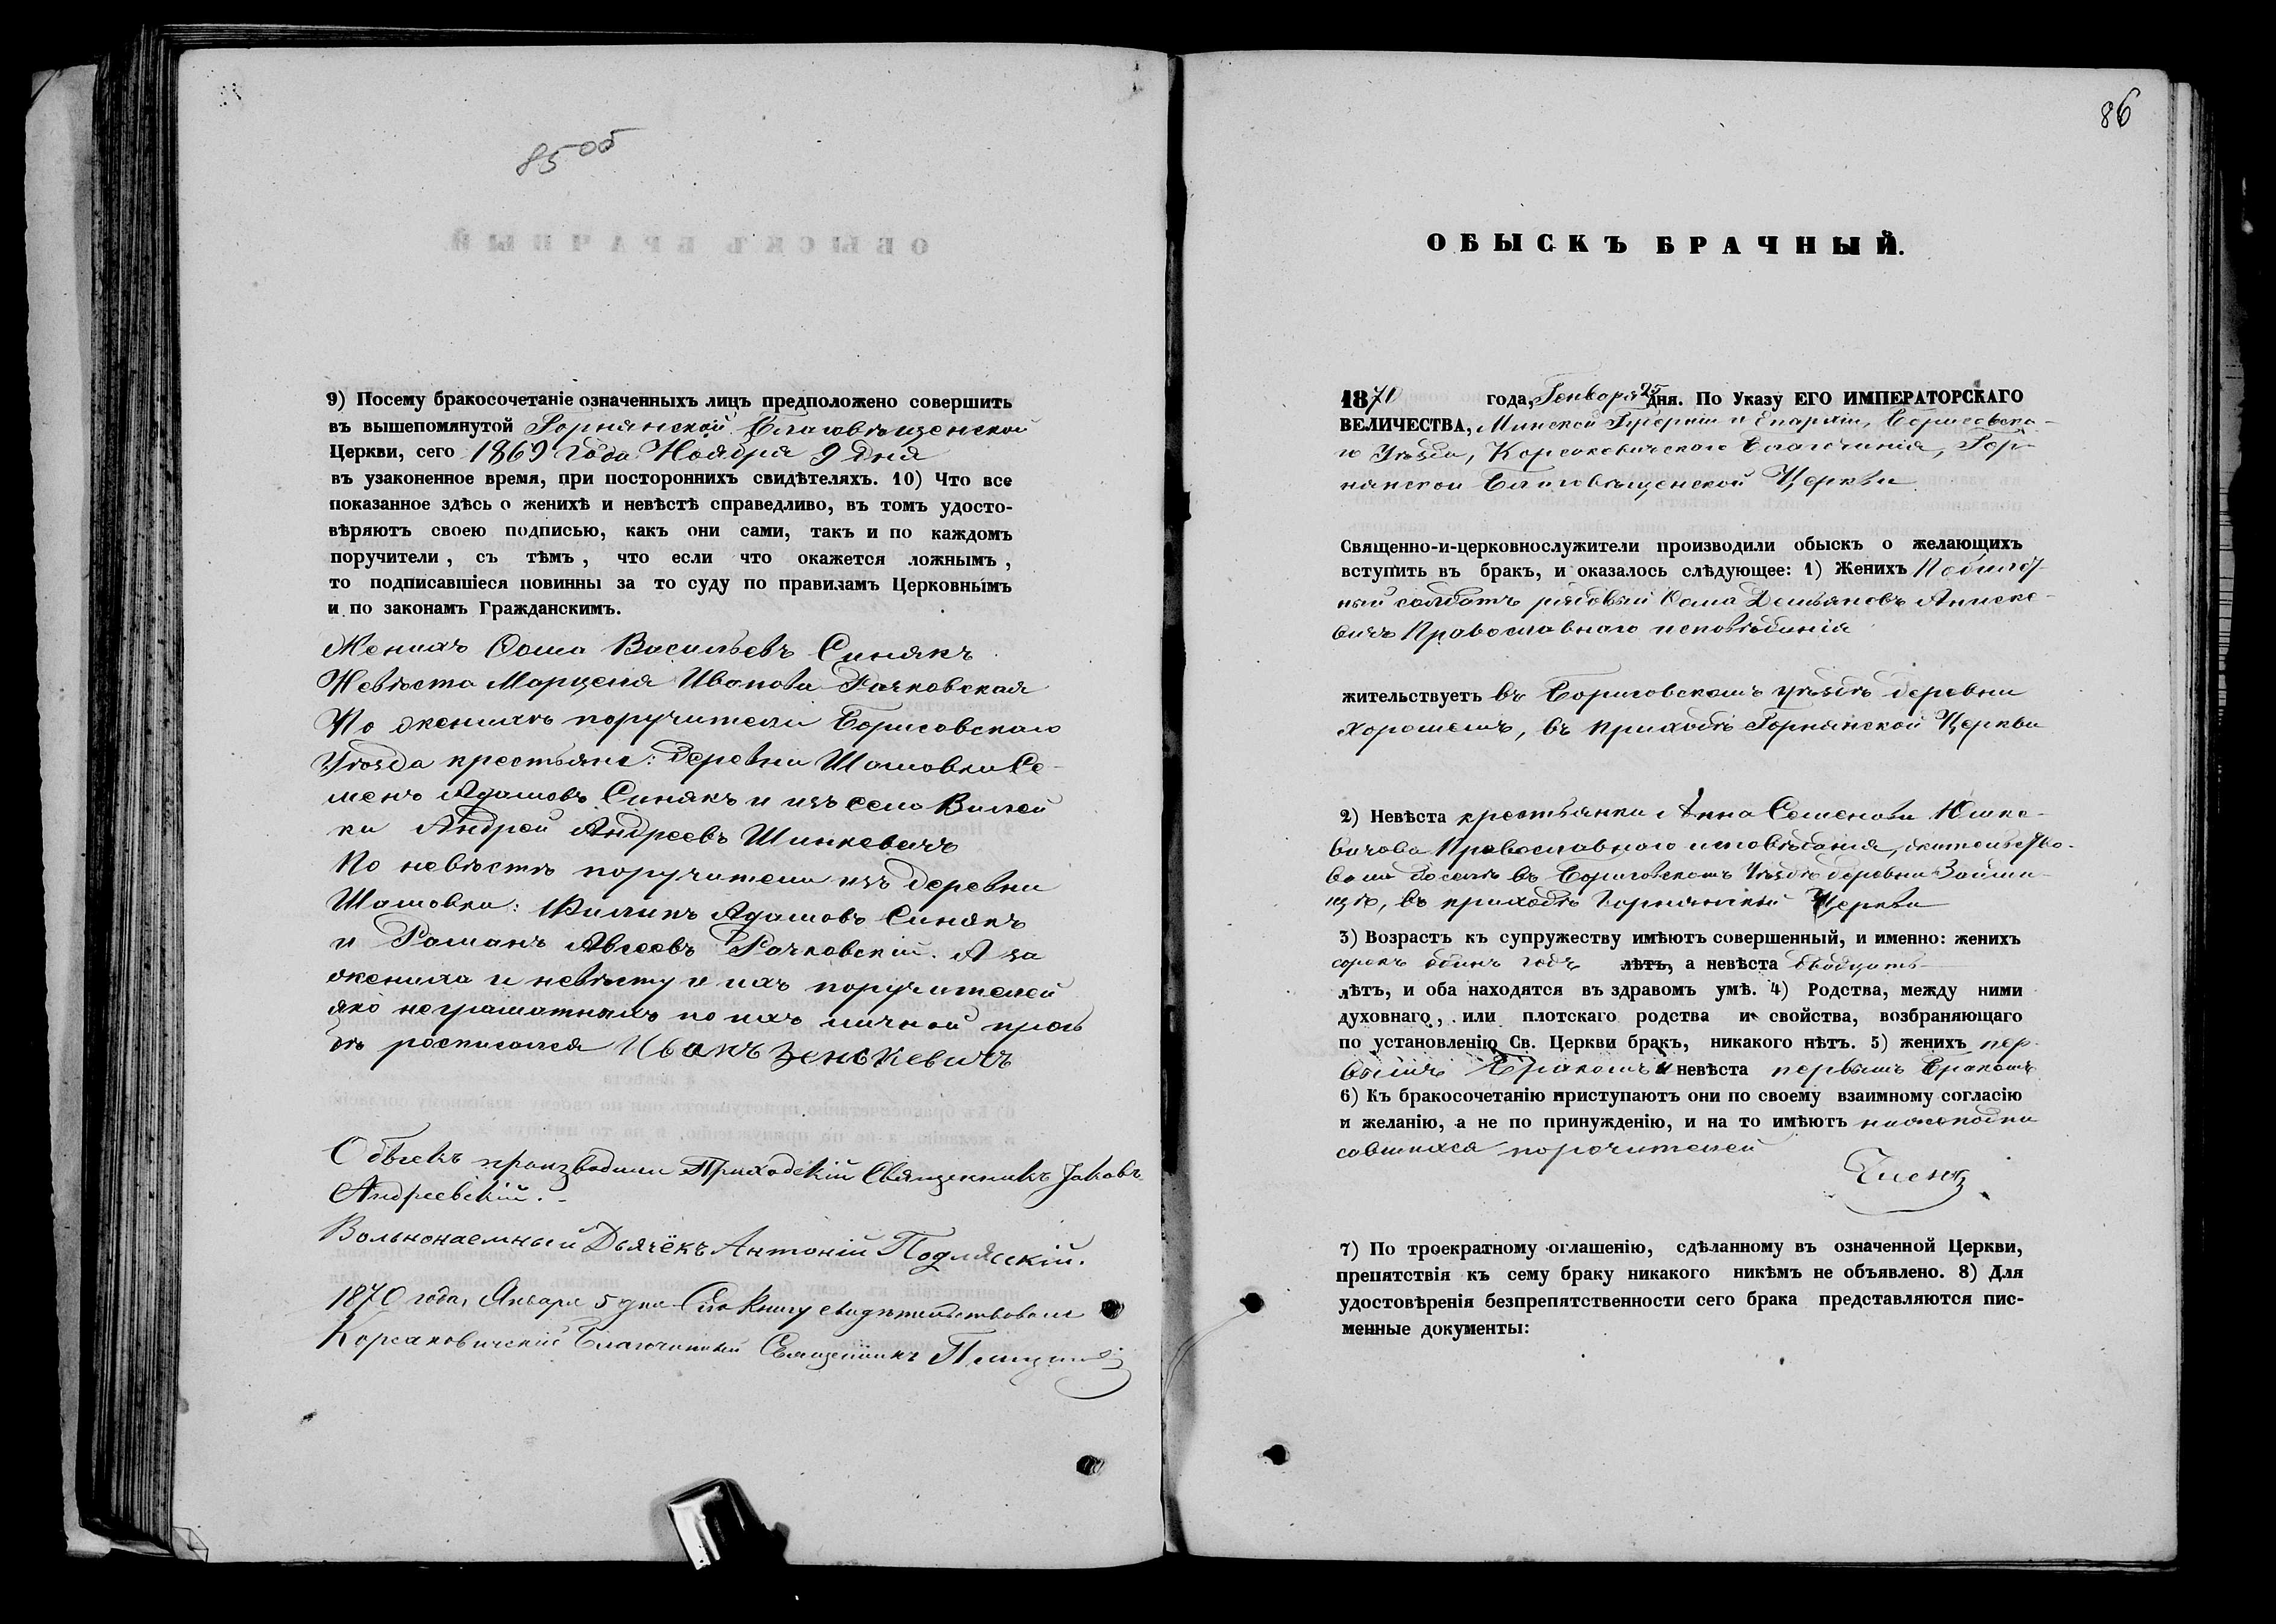 85 об
9) Посему бракосочетаніе означенныхъ лицъ предположено совершить
въ вышепомянутой Горнянской Благовѣщенской
Церкви, сего 1869 года Ноября 9 дня
въ узаконенное время, при постороннихъ свидѣтеляхъ. 10) Что все
показанное здѣсь о женихѣ и невѣстѣ справедливо, въ томъ удосто-
вѣряютъ своею подписью, какъ они сами, такъ и по каждомъ
поручители, съ тѣмъ, что если что окажется ложнымъ,
то подписавшіеся повинны за то суду по правиламъ Церковнымъ
и по законамъ Гражданскимъ.
Женихъ Ѳома Васильевъ Синякъ
Невѣста Марцеля Иванова Рачковская
По женихѣ поручители Борисовскаго
Уѣзда крестьяне: деревни Шамовки Се-
менъ Адамовъ Синякъ и изъ села Вилей
ки Андрей Андреевъ Шинкевичъ
По невѣстѣ поручители изъ деревни
Шамовки: Филипъ Адамовъ Синякъ
и Романъ Авсеевъ Рачковскій. А за
жениха и невѣсту и ихъ поручителей
яко неграматныхъ по ихъ личной прось
бѣ росписался Иванъ Зенькевичъ
Обыскъ производили Приходскій Священникъ Іаковъ
Андреевскій.
Вольнонаемный Дьячёкъ Антоній Подлясскій.
1870 года, Января 5 дня Сію Книгу свидѣтельствовалъ
Корсаковичскій Благочинный Священникъ
86
ОБЫСКЪ БРАЧНЫЙ.
1870 года, Генваря 25 дня. По Указу ЕГО ИМПЕРАТОРСКАГО
ВЕЛИЧЕСТВА, Минской Губерніи и Епархіи, Борисовска-
го Уѣзда, Корсаковичскаго Благочинія, Гор-
нянской Благовѣщенской Церкви
Священно-и-церковнослужители производили обыскъ о желающихъ
вступить въ бракъ, и оказалось слѣдующее: 1) Женихъ
солдатъ рядовый Ѳома Демьяновъ Аниске-
вичъ Православнаго исповѣданія
жительствуетъ въ Борисовскомъ уѣздѣ деревни
Хорошемъ, въ приходѣ Горнянской Церкви
2) Невѣста крестьянка Анна Семенова Юшке-
вичова Православнаго исповѣданія, жительство-
вала доселѣ въ Борисовскомъ Уѣздѣ деревни Займи-
щѣ, въ приходѣ Горнянской Церкви
3) Возрастъ къ супружеству имѣютъ совершенный, и именно: женихъ
сорокъ одинъ годъ лѣтъ, а невѣста двадцать
лѣтъ, и оба находятся въ здравомъ умѣ. 4) Родства, между ними
духовнаго, или плотскаго родства и свойства, возбраняющаго
по установленію Св. Церкви бракъ, никакого нѣтъ. 5) женихъ пер-
вымъ бракомъ и невѣста первымъ бракомъ
6) Къ бракосочетанію приступаютъ они по своему взаимному согласію
и желанію, а не по принужденію, и на то имѣютъ нижеподпи
савшихся поручителей
7) По троекратному оглашенію, сдѣланному въ означенной Церкви,
препятствія къ сему браку никакого никѣмъ не объявлено. 8) Для
удостовѣренія безпрепятственности сего брака представляются пис-
менные документы: